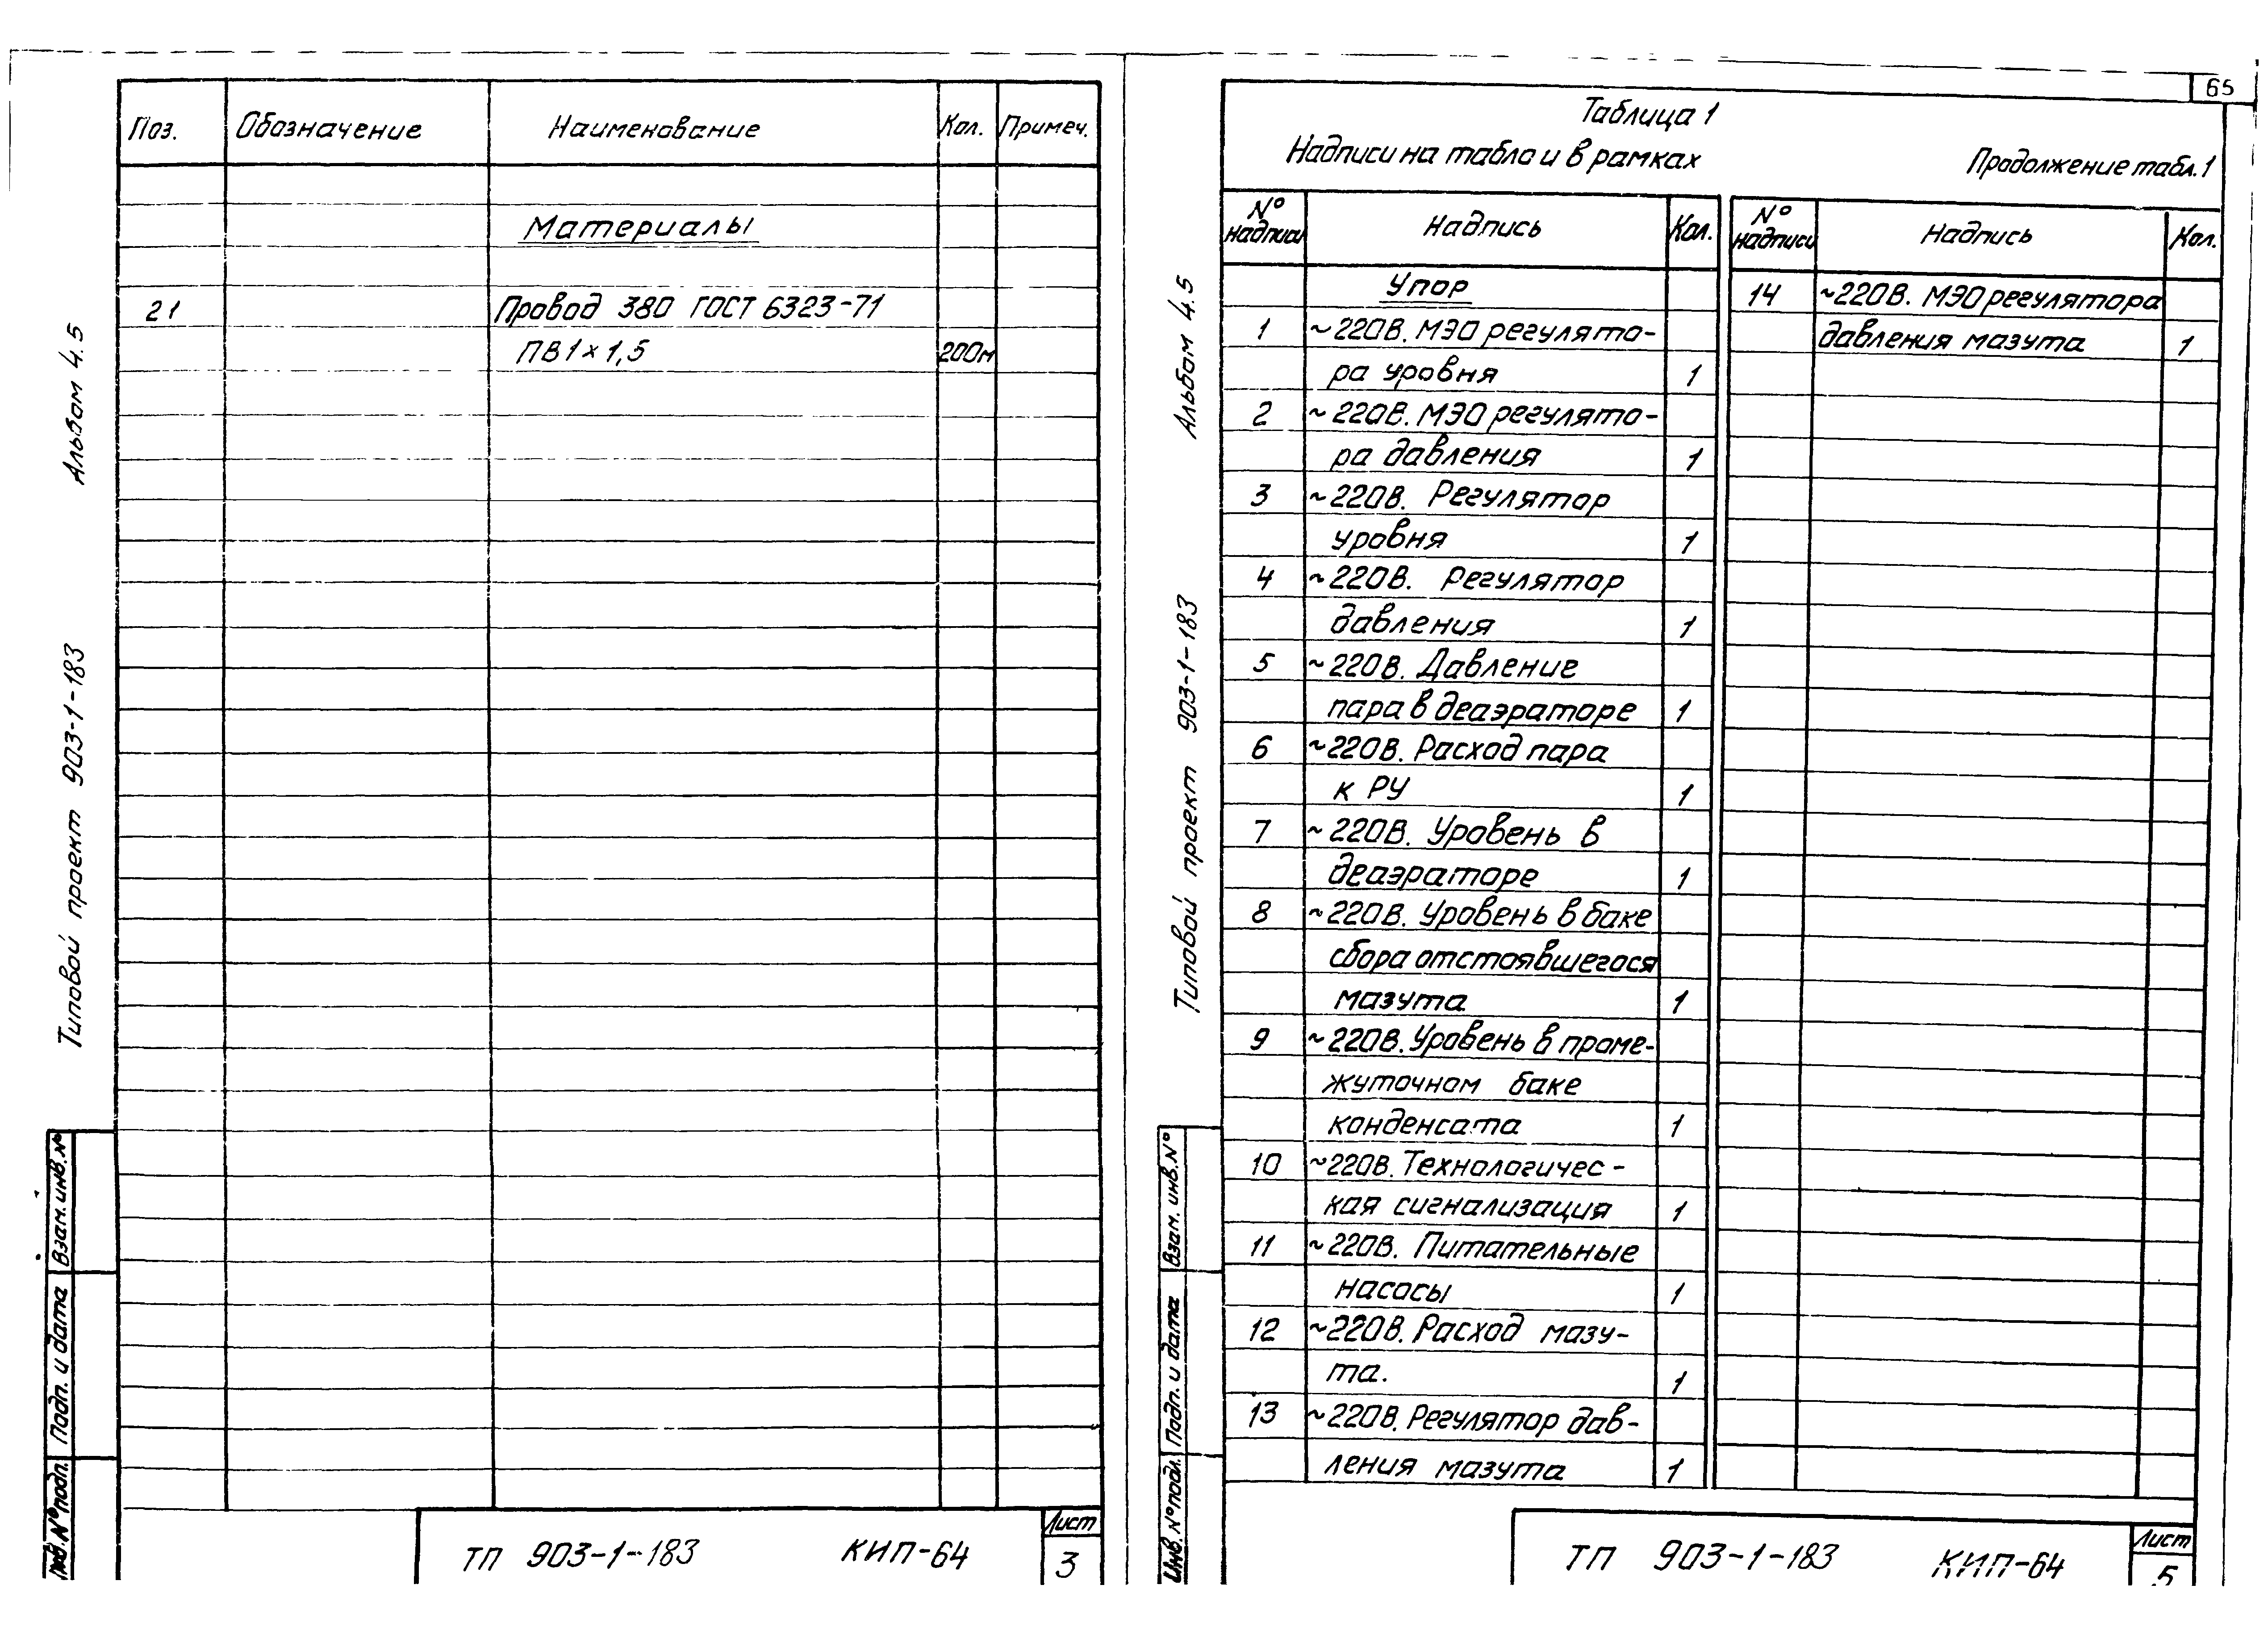 Поз. Обозначение Наименование Кол. Примеч.
Материалы
21 Провод 380 ГОСТ 6323-71
ПВ1х1,5 200м
Альбом 4.5
Типовой проект 903-1-183
Взам. инв. №
Подп. и дата
Инв. № подл.
ТП 903-1-183 КИП-64
Лист
3
65
Таблица 1
Надписи на табло и в рамках
Продолжение табл. 1
№ надписи Надпись Кол.
Упор
1 ~220В. МЭО регулято-
ра уровня 1
2 ~220В. МЭО регулято-
ра давления 1
3 ~220В. Регулятор
уровня 1
4 ~220В. Регулятор
давления 1
5 ~220В. Давление
пара в деаэраторе 1
6 ~220В. Расход пара
к РУ 1
7 ~220В. Уровень в
деаэраторе 1
8 ~220В. Уровень в баке
сбора отстоявшегося
мазута 1
9 ~220В. Уровень в проме-
жуточном баке
конденсата 1
10 ~220В. Технологичес-
кая сигнализация 1
11 ~220В. Питательные
насосы 1
12 ~220В. Расход мазу-
та. 1
13 ~220В. Регулятор дав-
ления мазута 1
№ надписи Надпись Кол.
14 ~220В. МЭО регулятора
давления мазута 1
Альбом 4.5
Типовой проект 903-1-183
Взам. инв. №
Подп. и дата
Инв. № подл.
ТП 903-1-183 КИП-64
Лист
5